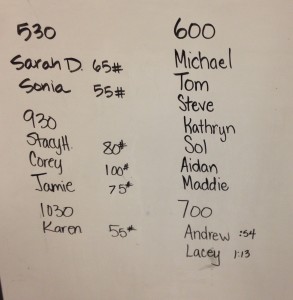 530
Sarah D. 65#
Sonia 55#
930
Stacy H. 80#
Corey 100#
Jamie 75#
1030
Karen 55#
600
Michael
Tom
Steve
Kathryn
Sol
Aidan
Maddie
700
Andrew :54
Lacey 1:13